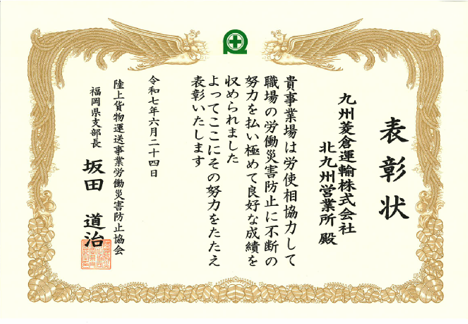 表彰状
九州菱倉運輸株式会社
北九州営業所 殿
貴事業場は労使相協力して
職場の労働災害防止に不断の
努力を払い極めて良好な成績を
収められました
よってここにその努力をたたえ
表彰いたします
令和七年六月二十四日
陸上貨物運送事業労働災害防止協会
福岡県支部長 坂田 道治